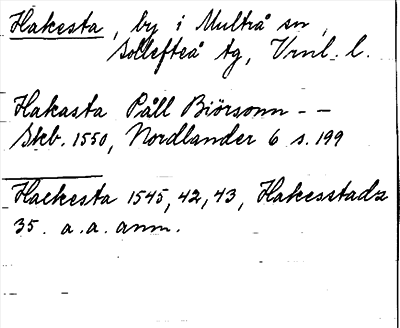 Hakesta, by i Multrå sn,
Sollefteå tg, Vrnl. l.
Hakasta Påll Biörsonn - -
Skb. 1550, Nordlander 6 s. 199
Hackesta 1545, 42, 43, Hakesstadz
35. a.a. anm.